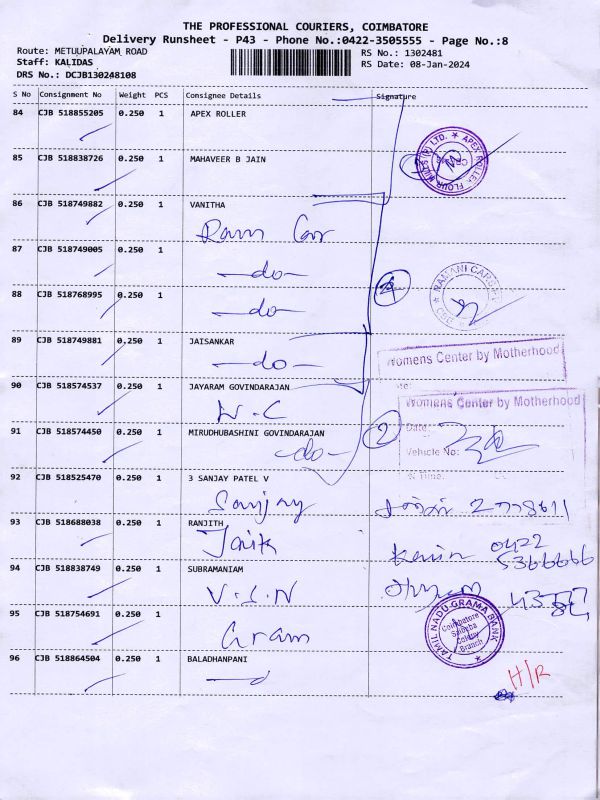 THE PROFESSIONAL COURIERS, COIMBATORE
Delivery Runsheet - P43 - Phone No.:0422-3505555 - Page No.:8
Route: METUUPALAYAM ROAD RS No.: 1302481
Staff: KALIDAS RS Date: 08-Jan-2024
DRS No.: DCJB130248108
S No Consignment No Weight PCS Consignee Details Signature
84 CJB 518855205 0.250 1 APEX ROLLER
APEX ROLLER FLOUR MILLS (P) LTD.
85 CJB 518838726 0.250 1 MAHAVEER B JAIN
86 CJB 518749882 0.250 1 VANITHA
87 CJB 518749005 0.250 1
-do-
RAMANI CARS
88 CJB 518768995 0.250 1
-do-
89 CJB 518749881 0.250 1 JAISANKAR
-do-
Womens Center by Motherhood
90 CJB 518574537 0.250 1 JAYARAM GOVINDARAJAN
W.C
Womens Center by Motherhood
Date:
91 CJB 518574450 0.250 1 MIRUDHUBASHINI GOVINDARAJAN
-do- 2
Vehicle No:
Time:
92 CJB 518525470 0.250 1 3 SANJAY PATEL V
Sanjay
93 CJB 518688038 0.250 1 RANJITH
0422
5366666
94 CJB 518838749 0.250 1 SUBRAMANIAM
V.S.N
TAMIL NADU GRAMA BANK
Coimbatore
Saibaba
Colony
Branch
95 CJB 518754691 0.250 1
Gram
96 CJB 518864504 0.250 1 BALADHANPANI
H/R